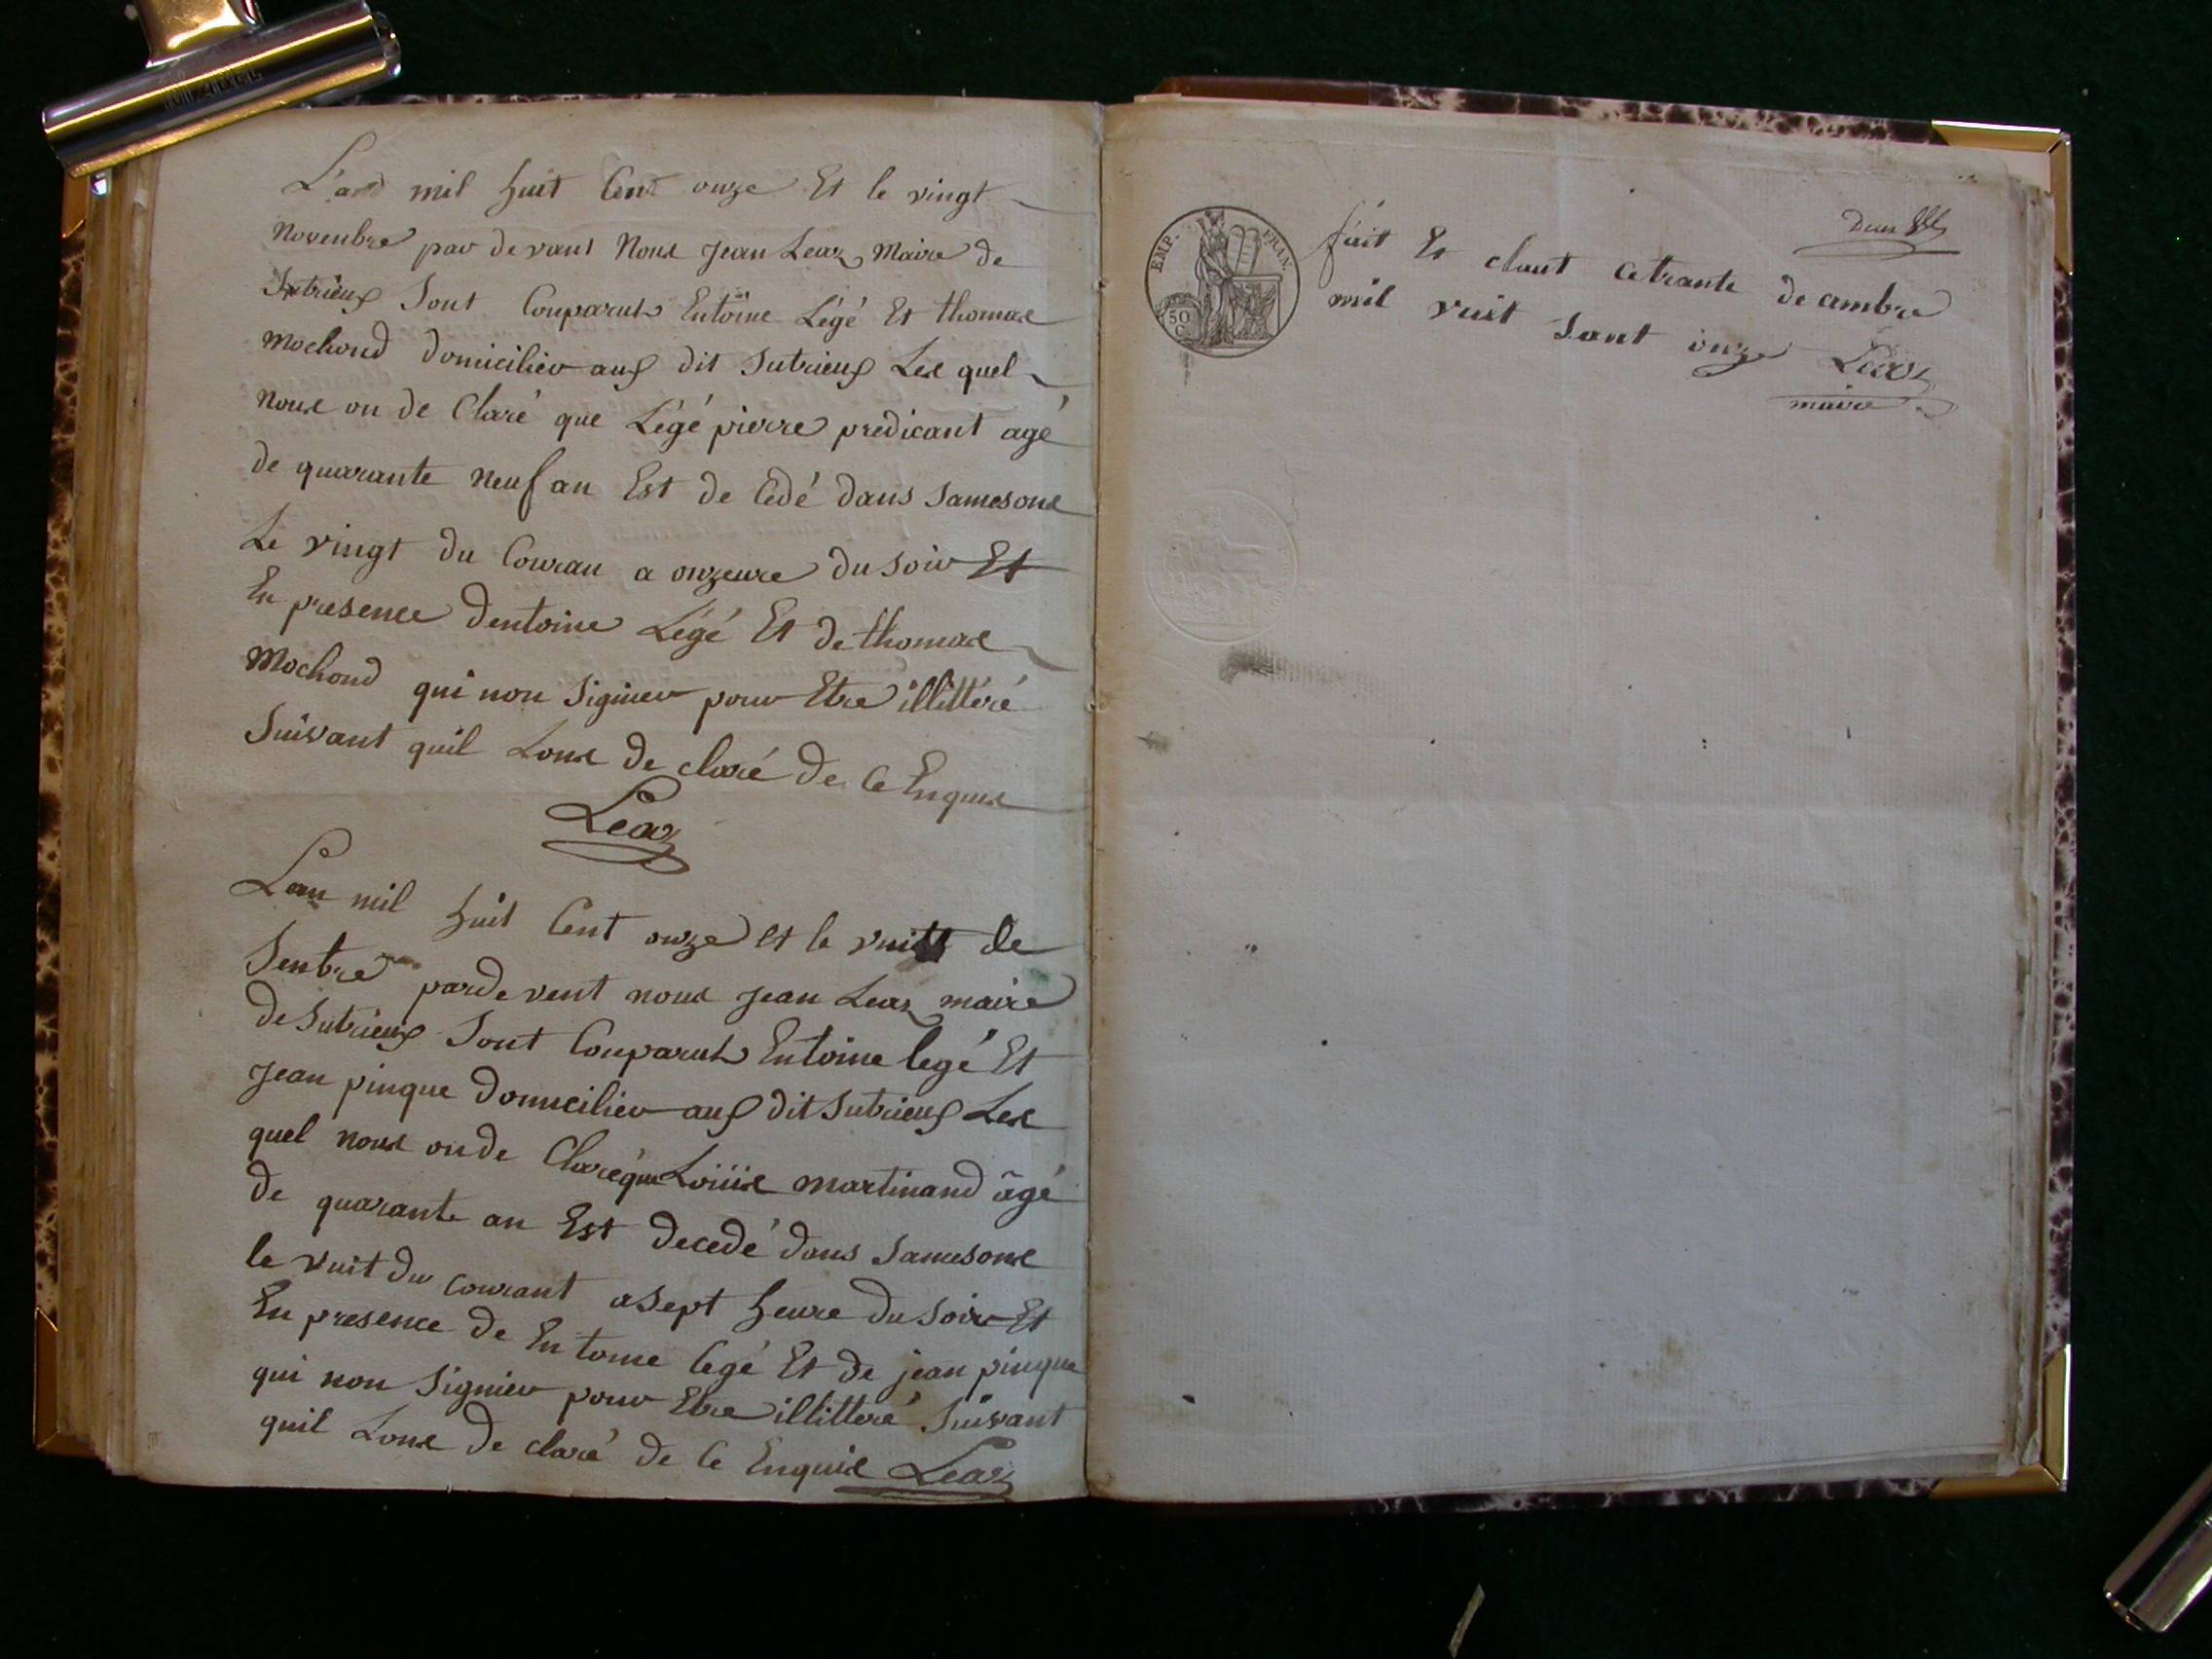 L'and mil huit Cent onze Et le vingt
Novenbre par devant Nous Jean Lear Maire de
Sutrieux Sont Couparut Entoine Légé Et thomas
Mochond domicilier aux dit Sutrieux Les quel
Nous on de Claré que Légé pierre predicant agé
de quarante neuf an Est de Cedé dans Samesons
Le vingt du Couran a onzeure du Soir Et
En presence dentoine Légé Et de thomas
Mochond qui non Signier pour Etre illittéré
Suivant quil Lons de claré de Ce Enquis
Lear
Lan mil huit Cent onze et le vuit de
Senbre pardevent nous Jean Lear maire
de Sutrieux Sont Couparut Entoine legé Et
Jean pinque Domicilier aux dit Sutrieux Les
quel nous on de Claré que Louise martinand âgé
de quarante an Est decedé dans Samesons
le vuit du courant a Sept heure du Soir Et
En presence de Entoine legé Et de jean pinque
qui non Signier pour Etre illitteré Suivant
quil Lons de claré de Ce Enquis Lear
deux
EMP. FRAN.
50 C.
fait Et claut Cetrante de cembre
mil vuit Sant onze Lear
maire